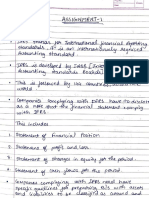 ASSIGNMENT-1
• IFRS stands for International financial reporting
standards. It is an internationally recognised
Accounting standard.
• IFRS is developed by IASB (
Accounting standards Board).
• This is followed by 
• Companies complying with IFRS have to disclose
as a note that the financial statements comply with
IFRS
• This includes
• Statement of Financial Position
• Statement of profit and loss.
• Statement of changes in equity for the period
• Statement of cash flows for the period.
• Companies complying with IFRS need to have
specific guidelines for preparing B/S with assets
and liabilities to be classified as current and